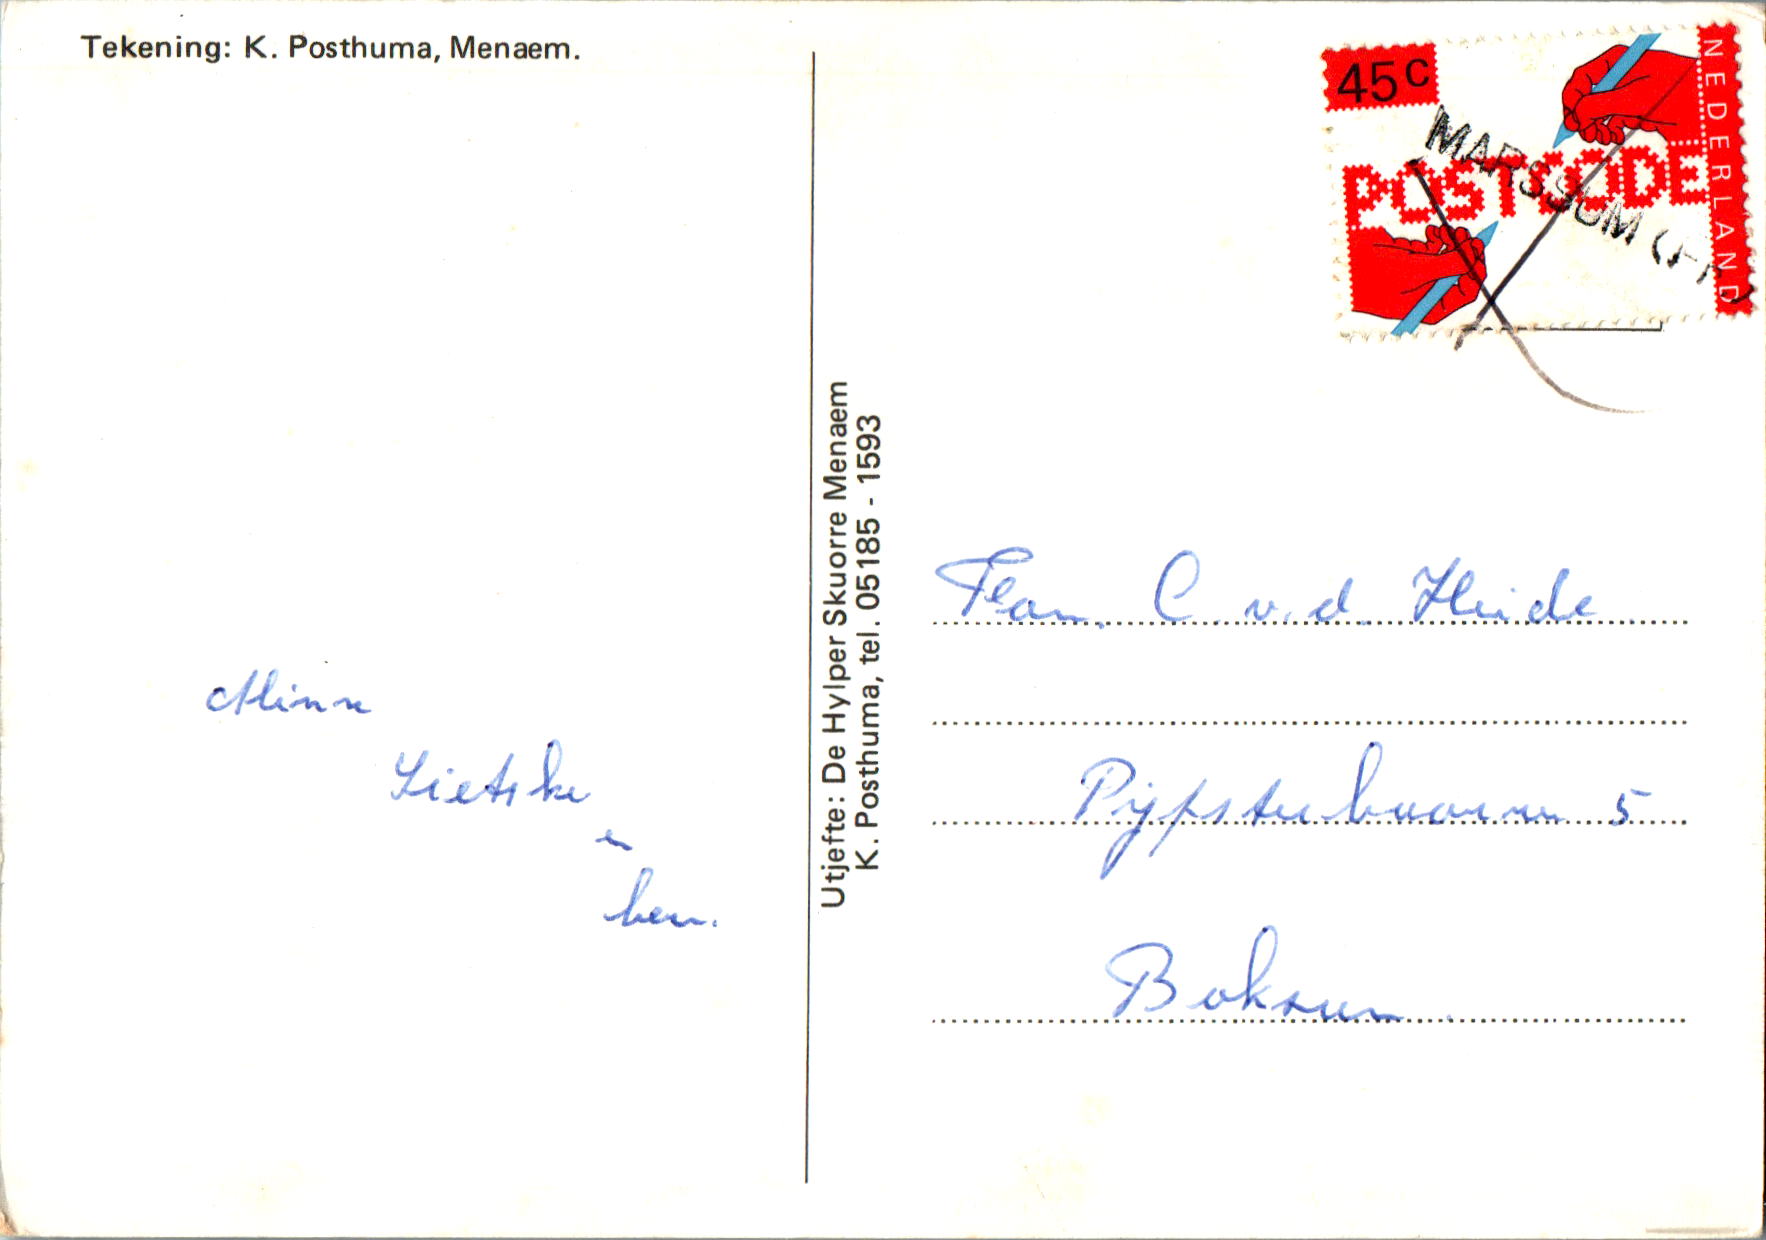 Tekening: K. Posthuma, Menaem.
45c
NEDERLAND
POSTCODE
MARSSUM (Fr.)
Utjefte: De Hylper Skuorre Menaem
K. Posthuma, tel. 05185 - 1593
Fam. C. v.d. Heide
5
Boksum
Minne
Sietske
en
ben.